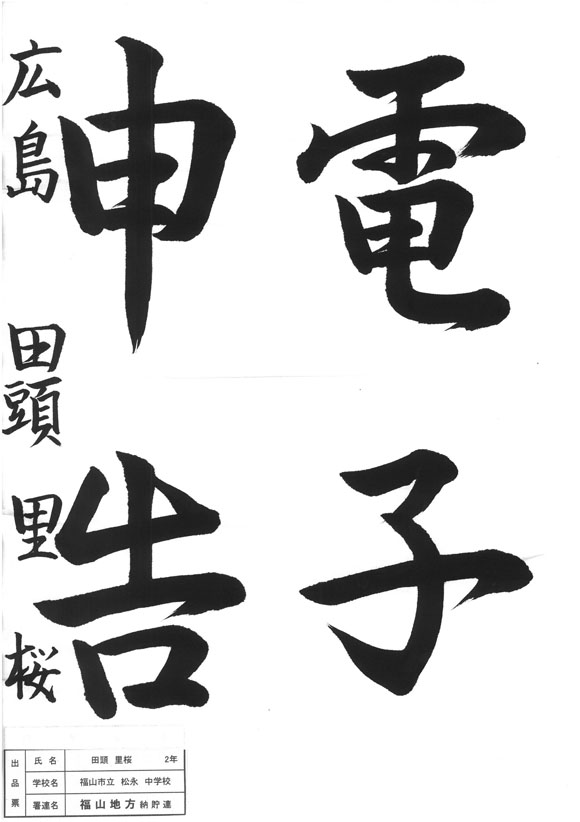 電子
申告
広島 田頭 里桜
出品票
氏名 田頭 里桜 2年
学校名 福山市立 松永 中学校
署連名 福山地方納貯連